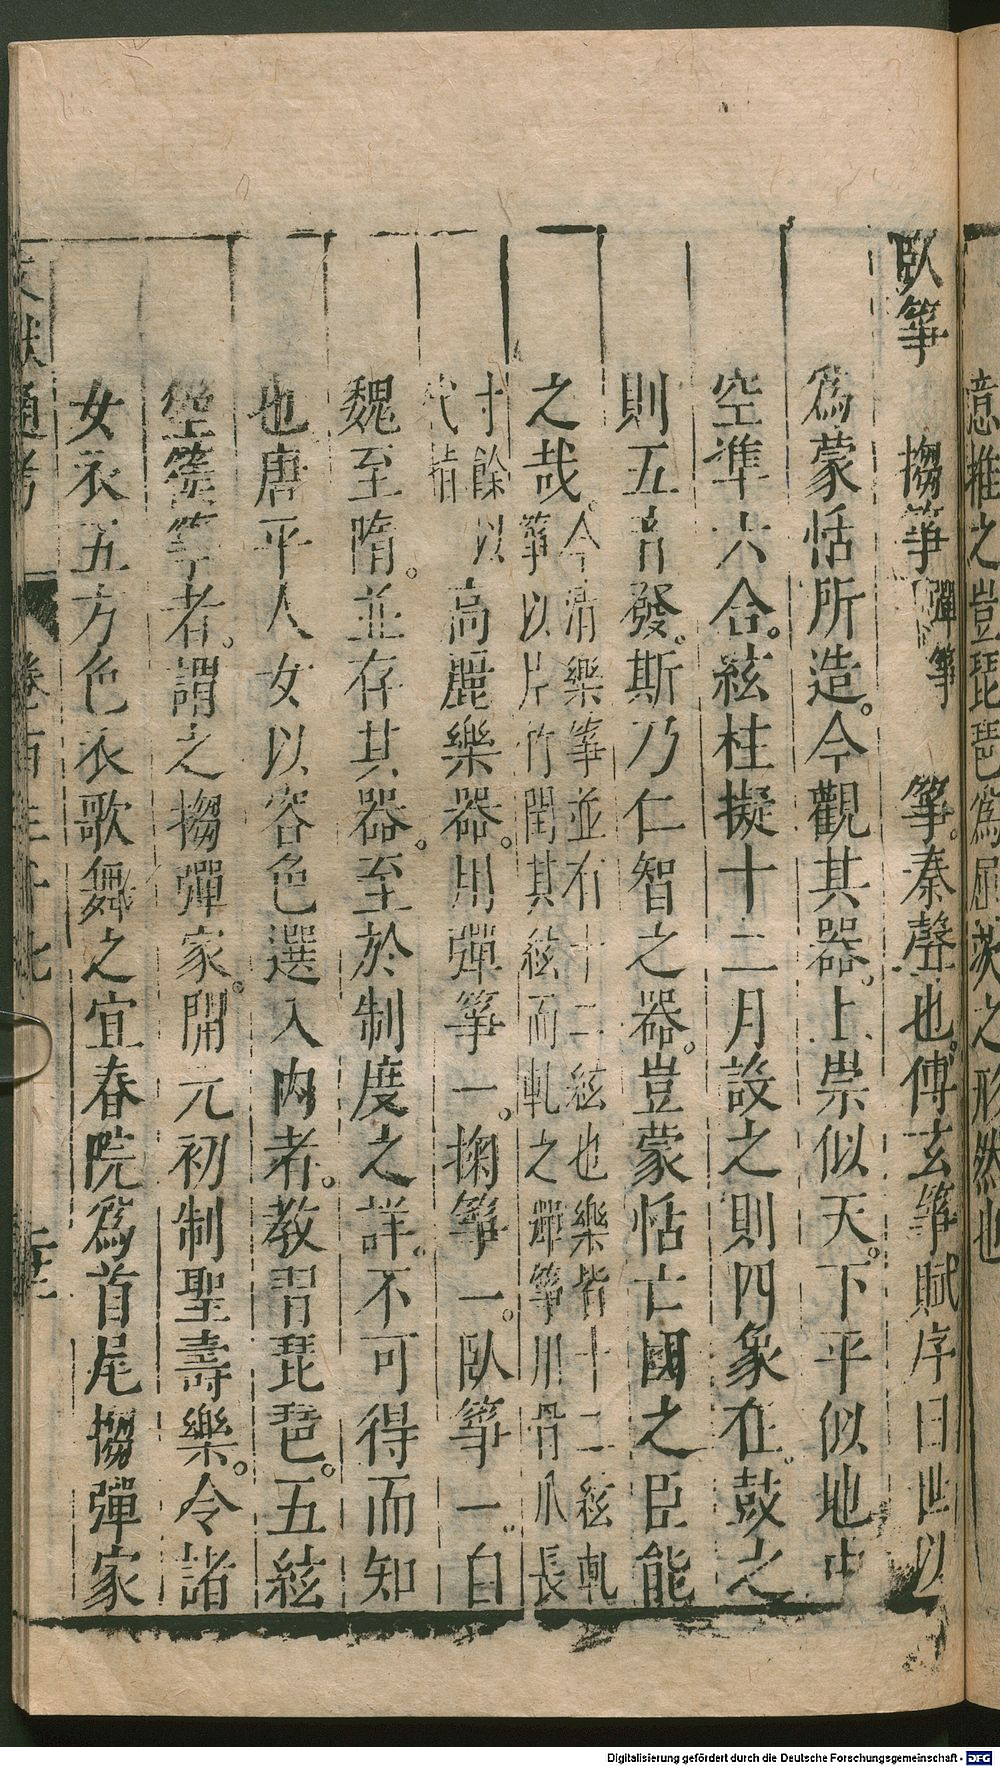 意推之豈琵琶爲屈茨之形然也
臥箏 搊箏 彈箏 箏。秦聲也。傅玄箏賦序曰世以
爲蒙恬所造。今觀其器。上崇似天。下平似地中
空準六合。絃柱擬十二月設之則四象在。鼓之
則五音發。斯乃仁智之器。豈蒙恬亡國之臣能
之哉。今清樂箏並有十二絃也樂皆十二絃軋
箏以片竹閏其絃而軋之彈箏用骨爪長
寸餘以
代指 高麗樂器。用彈箏一。掬箏一。臥箏一。自
魏至隋。並存其器。至於制度之詳。不可得而知
也唐平人女以容色選入內者。教習琵琶。五絃
箜篌箏者。謂之搊彈家。開元初制聖壽樂。令諸
女衣五方色衣歌舞之宜春院爲首尾搊彈家
文獻通考
Digitalisierung gefördert durch die Deutsche Forschungsgemeinschaft - DFG